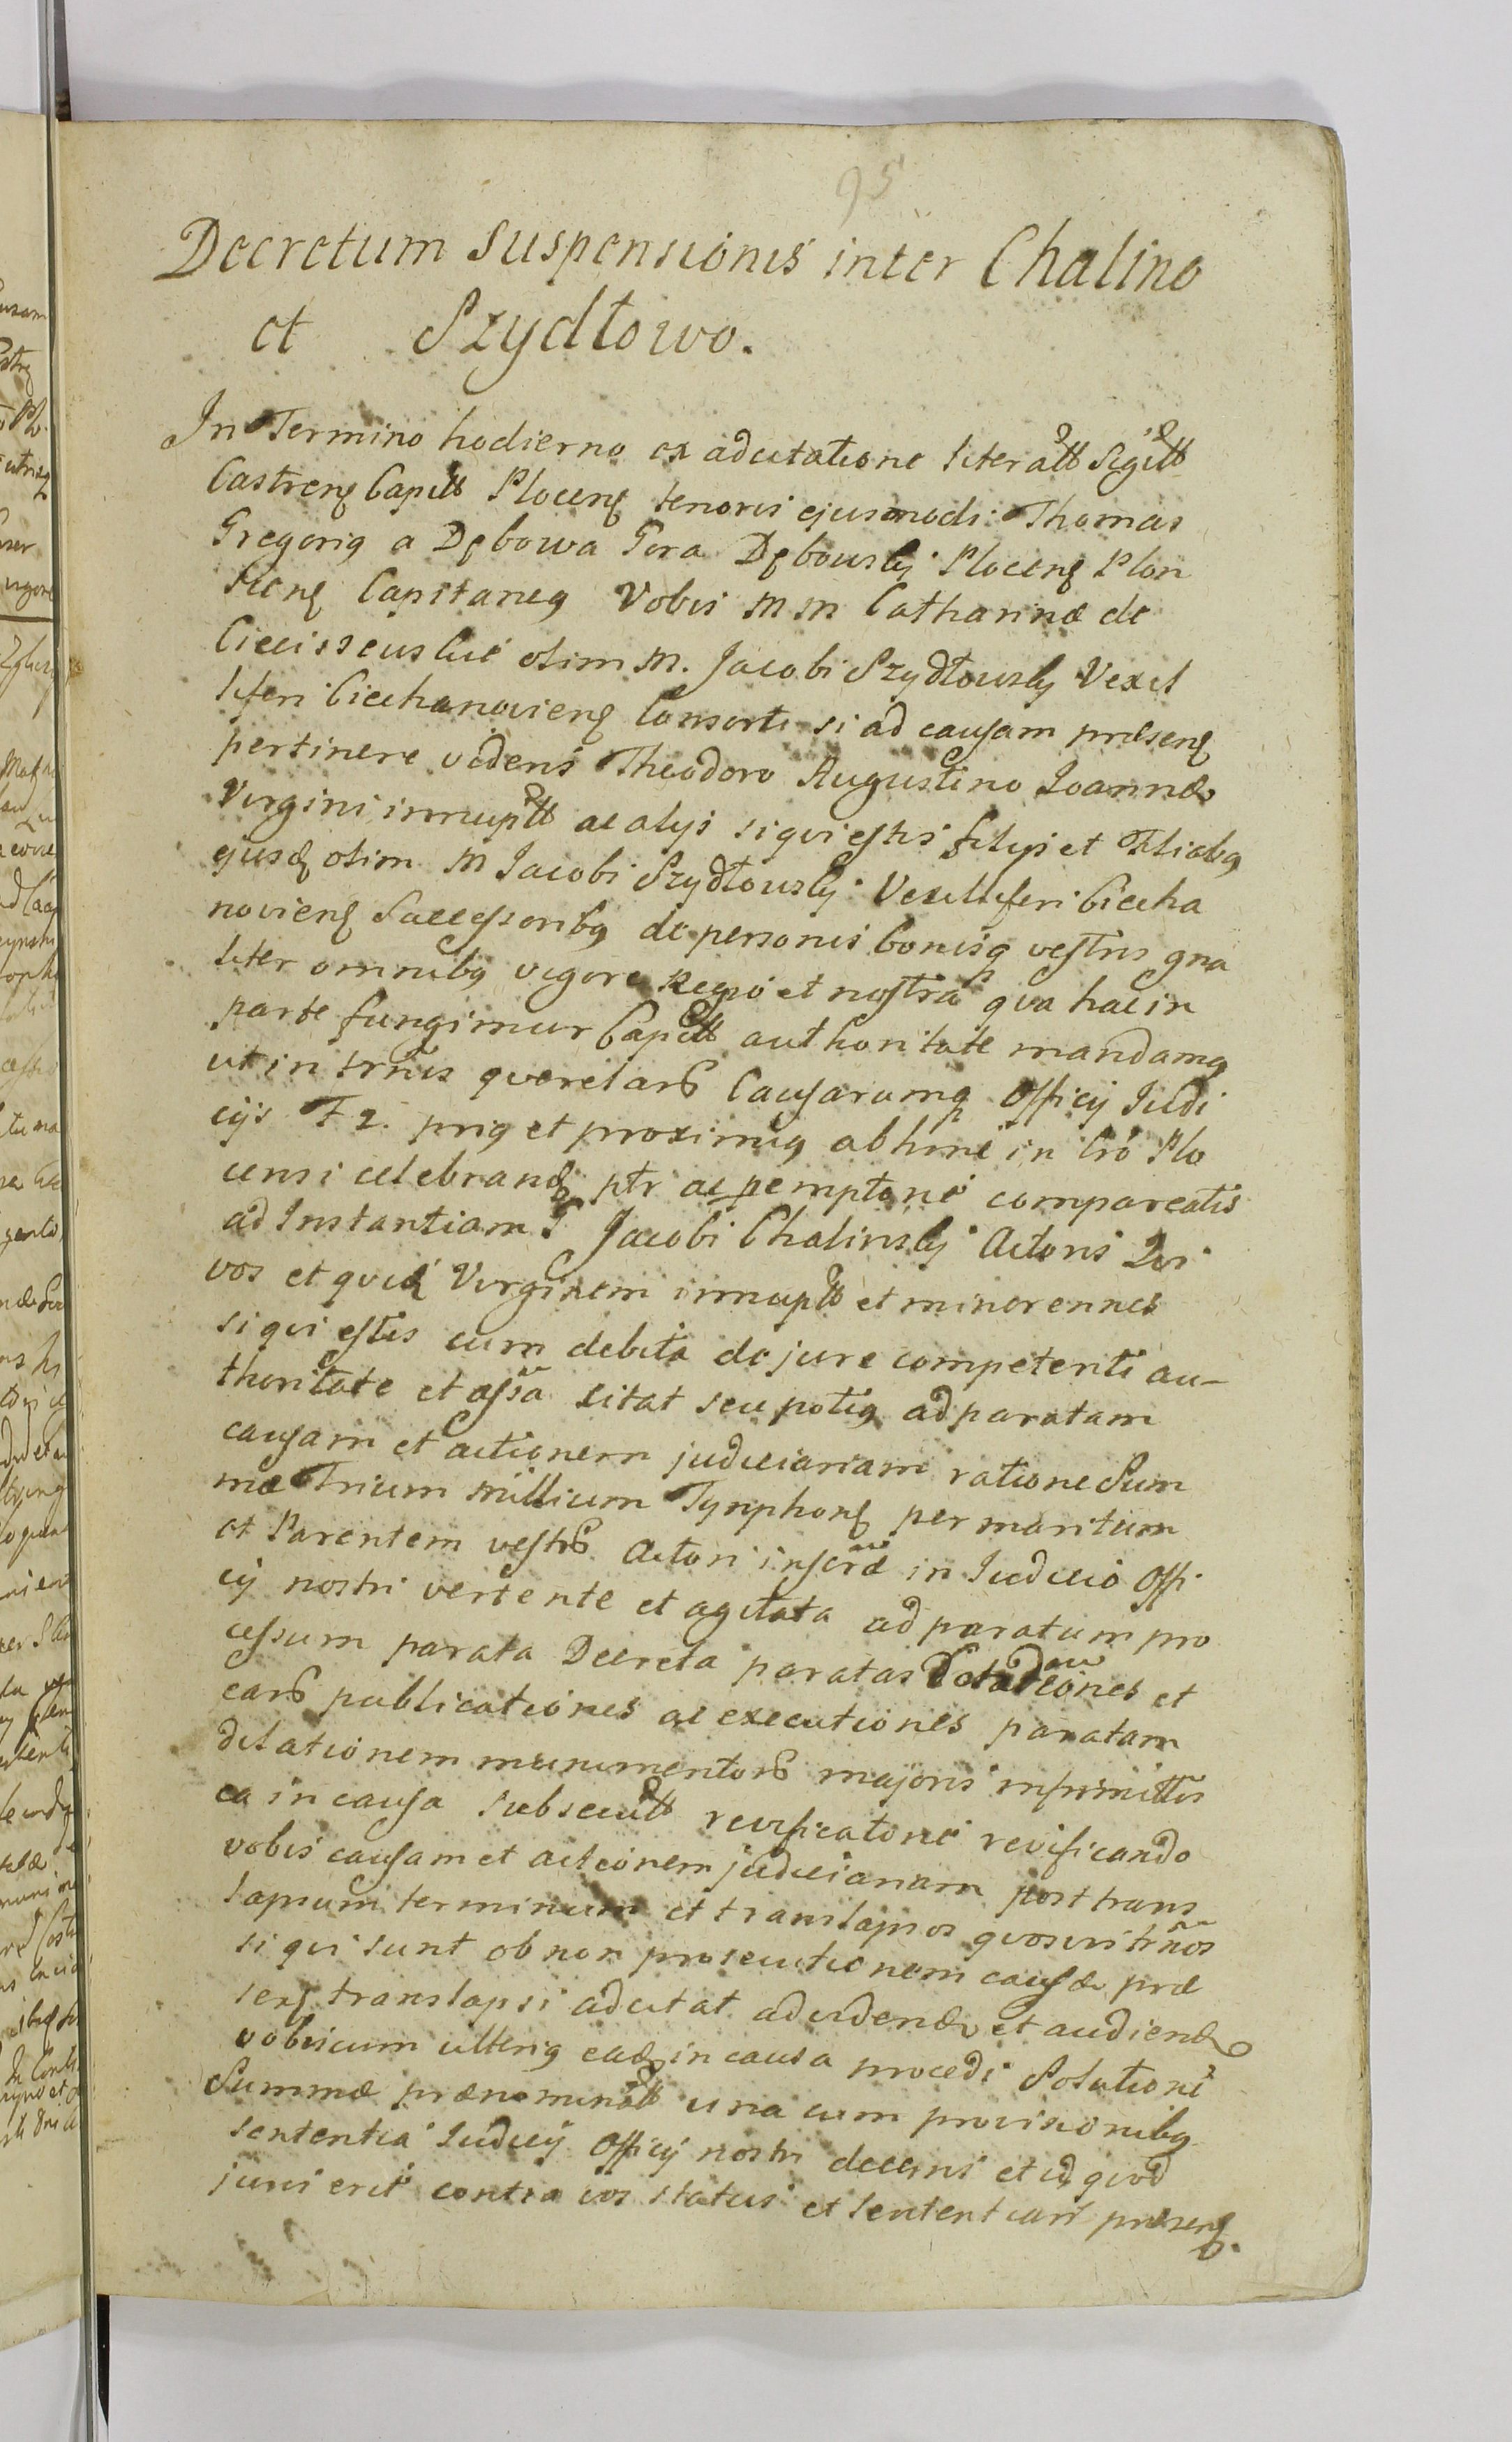 95
Decretum Suspensionis inter Chalino
et Szydłowo.
In Termino hodierno ex adcitatione literałł Sigiłł
Castrenꝭ Capitł Plocenꝭ tenoris ejusmodi: Thomas
Gregoriꝯ a Dębowa Gora Dębowski Plocenꝭ Plon
scenꝭ Capitaneꝯ Vobis M M Catharinæ de
olim M. Jacobi Szydłowsky Vexil
liferi Ciechanovienꝭ Consorti si ad causam præsenꝭ
pertinere videris Theodoro Augustino Ioannæ
Virgini innuptłł ac alys si qui estis filys et Filiabꝯ
ejusdꝭ olim M Jacobi Szydłowsky Vexilliferi Ciecha
novienꝭ Successoribꝯ de personis bonisqꝫ vestris gna
liter omnibꝯ vigore Regio et nostra qva hac in
parte fungimur Capitłł authoritate mandamꝯ
ut in trn̄is qverelarꝭ Causarumqꝫ Officy Iudi
cys F 2. priꝯ et proximiꝯ abhinc in Cro Plo
censi celebrandꝭ ptr ac pemptorie compareatis
ad Instantiam G Jacobi Chalinsky Actoris Qui
vos et qvid Virginem innuptłł et minorennes
si qui estis cum debita de jure competenti au-
thoritate et assa citat seu potiꝯ ad paratam
causam et actionem judiciariam ratione Sum
mæ Trium Millium Tynphonꝭ per maritum
et Parentem vestrꝭ Actori inscræ in Iudicio Offi
cy nostri vertente et agitata ad paratum pro
cessum parata Decreta paratas et
earꝭ publicationes ac executiones paratam
dilationem munimentorꝭ majoris
ea in causa subsecutłł reificatorie reificando
vobis causam et actionem judiciariam post trans
lapsum terminum et translapsos qvosvis trn̄os
si qui sunt ob non prosecutionem causæ præ
senꝭ translapsi adcitat ad videndꝭ et audiendꝭ
vobiscum ulteriꝯ eadꝭ in causa procedi Solutione
Summæ prænominatłł una cum provisionibꝯ
sententia Iudicy Officy nostri decerni et id qvod
juris erit contra vos statui et sententiari præsenꝭ.